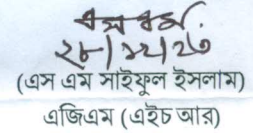 ২৮/১২/২৩
(এস এম সাইফুল ইসলাম)
এজিএম (এইচ আর)